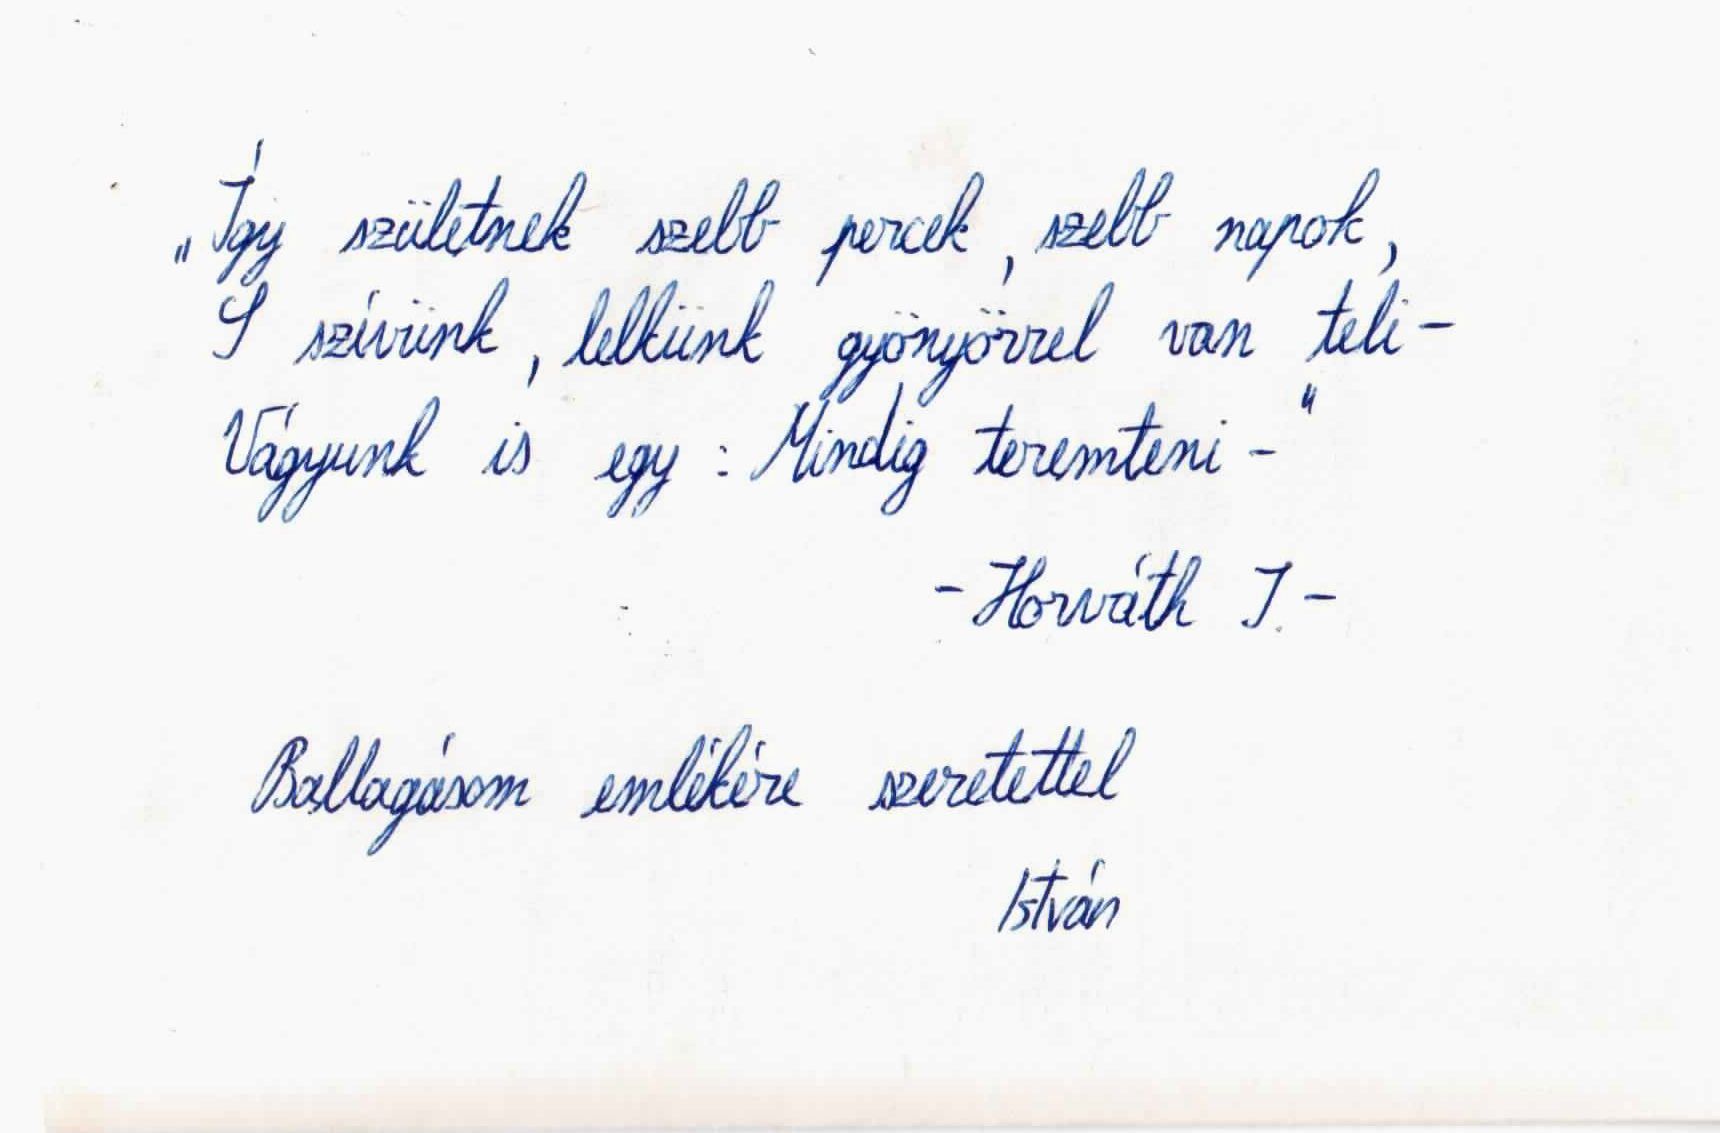 „Így születnek szebb percek, szebb napok,
S szívünk, lelkünk gyönyörrel van teli –
Vágyunk is egy: Mindig teremteni –"
– Horváth I. –
Ballagásom emlékére szeretettel
István